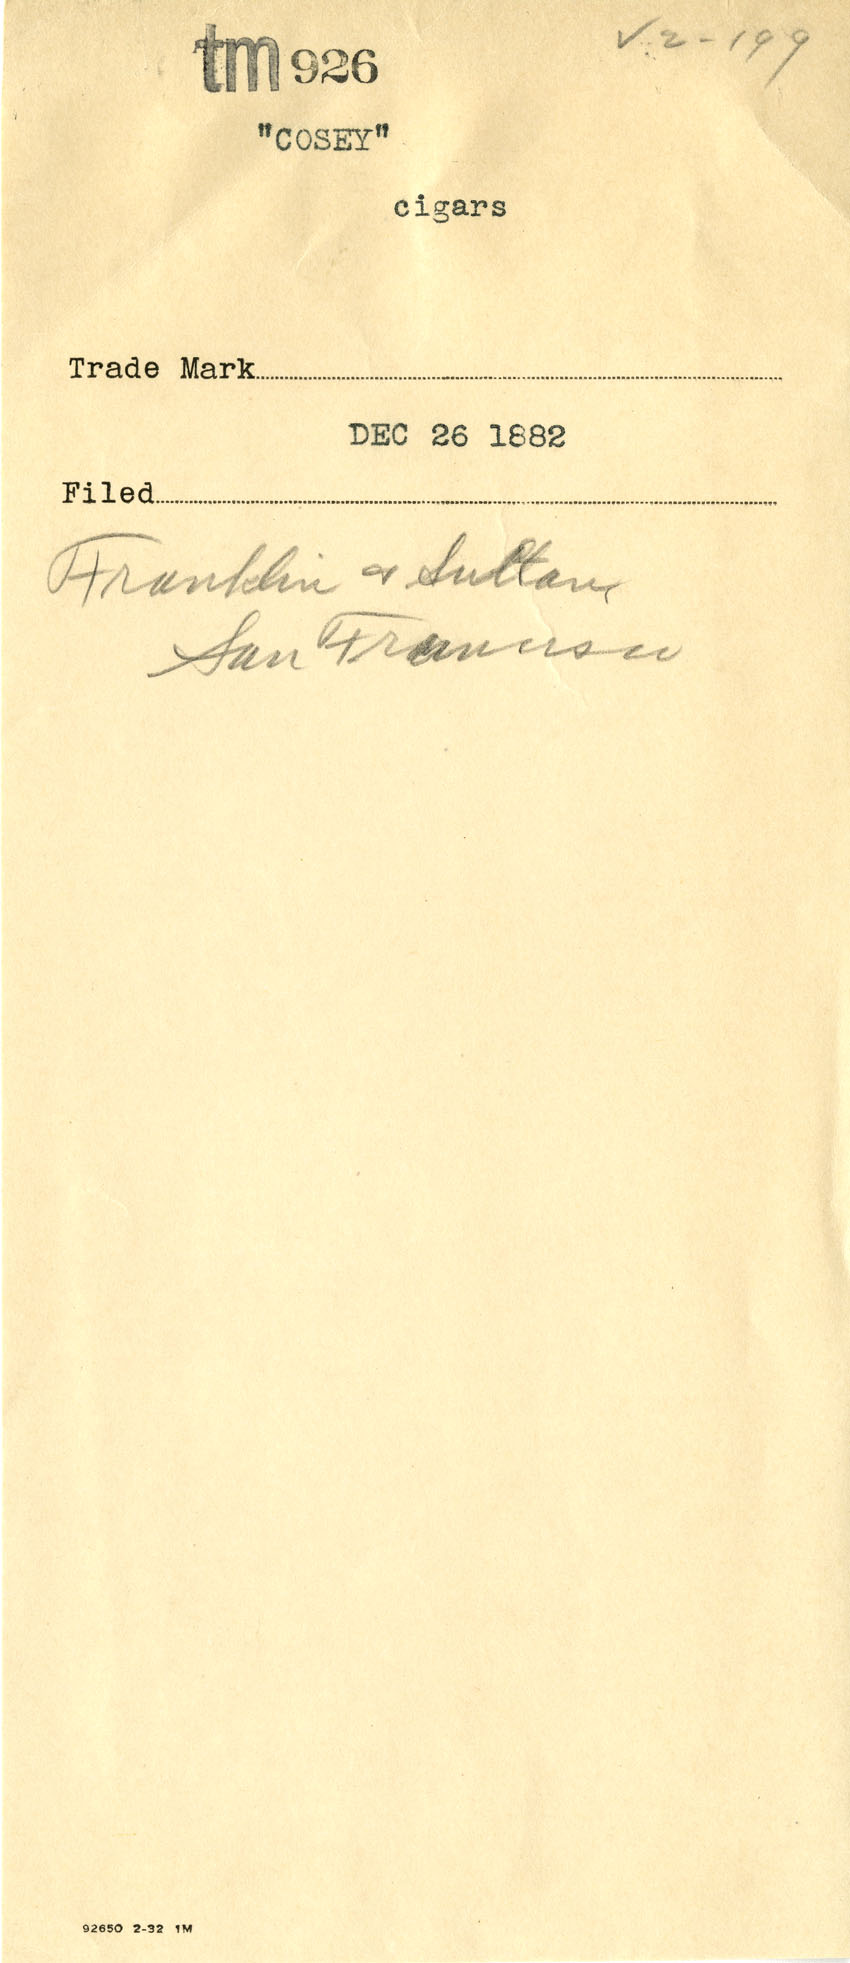 tm 926
V.2-199
"COSEY"
cigars
Trade Mark
DEC 26 1882
Filed
Franklin & Sultan,
San Francisco
92650 2-32 1M